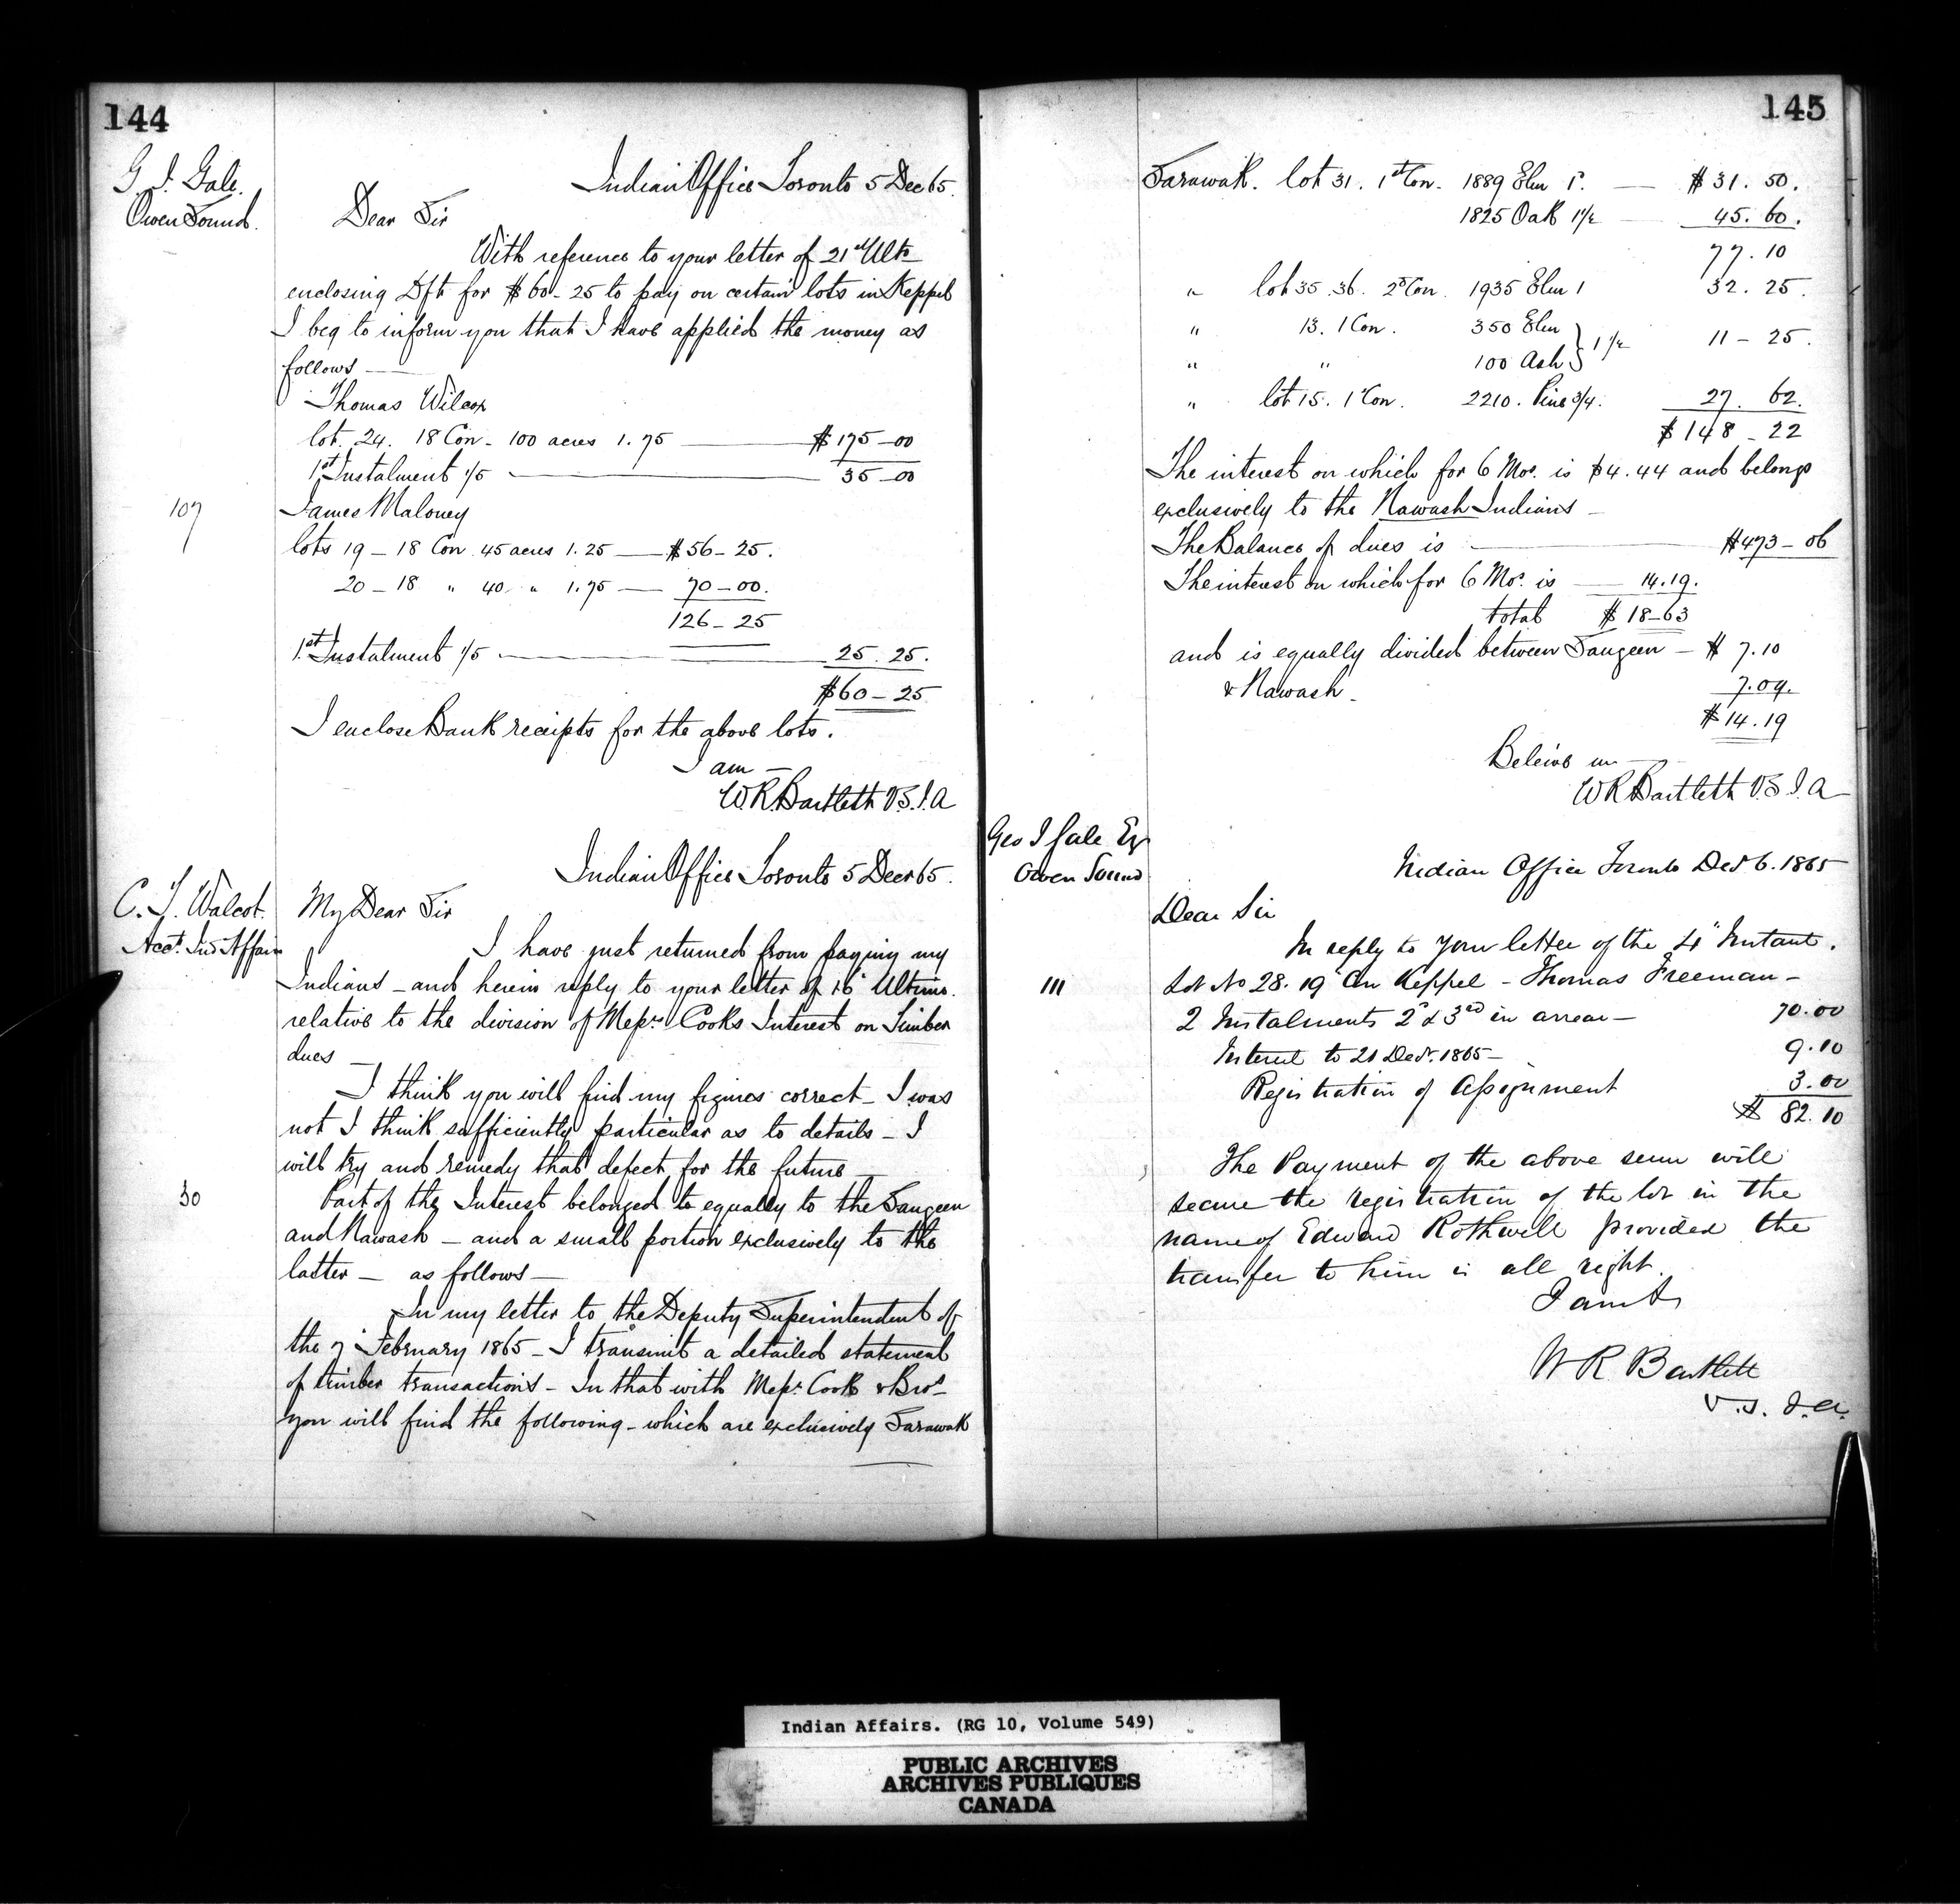 144
G. J. Gale.
Owen Sound.
Indian Office Toronto 5 Dec 65.
Dear Sir
With reference to your letter of 21st Ulto
enclosing Dft for $60-25 to pay on certain lots in Keppel
I beg to inform you that I have applied the money as
follows —
Thomas Wilcox
lot. 24. 18 Con - 100 acres 1.75 — $175-00
1st Instalment 1/5 — 35-00
107
James Maloney
lots 19 - 18 Con 45 acres 1.25 — $56-25.
20 - 18 " 40 " 1.75 — 70-00.
126-25
1st Instalment 1/5 — 25.25.
$60-25
I enclose Bank receipts for the above lots.
I am —
W.R. Bartlett V.S.I.A
Indian Office Toronto 5 Decr 65.
C. T. Walcot.
Acct. Ind Affairs
My Dear Sir
I have just returned from paying my
Indians - and herein reply to your letter of 16" Ultimo.
relative to the division of Messrs Cooks Interest on Timber
dues —
I think you will find my figures correct - I was
not I think sufficiently particular as to details - I
will try and remedy that defect for the future —
30
Part of the Interest belonged to equally to the Saugeen
and Nawash - and a small portion exclusively to the
latter — as follows —
In my letter to the Deputy Superintendent of
the 7" February 1865 - I transmit a detailed statement
of timber transactions - In that with Messrs Cook & Bros
you will find the following - which are exclusively Sarawak
145
Sarawak. lot 31. 1st Con. 1889 Elm 1c. — $31.50.
1825 Oak 1 1/2 — 45.60.
77.10
" lot 35.36. 2d Con. 1935 Elm 1 32.25.
" 13. 1 Con. 350 Elm } 1 1/2 11-25.
" " 100 Ash }
" lot 15. 1 Con. 2210. Pine 3/4. 27.62.
$148-22
The interest on which for 6 Mos. is $4.44 and belongs
exclusively to the Nawash Indians —
The Balance of dues is — $473-06
The interest on which for 6 Mos. is — 14.19.
total $18-63
and is equally divided between Saugeen — $7.10
& Nawash — 7.09.
$14.19
Beleive me —
W R Bartlett V.S I.A
Geo J Gale Eqr
Owen Sound
Indian Office Toronto Decr 6. 1865
Dear Sir
In reply to your letter of the 4" Instant.
111
Lot No 28. 19" Con Keppel - Thomas Freeman —
2 Instalments 2d & 3rd in arrear — 70.00
Interest to 21 Decr. 1865 — 9.10
Registration of Assignment 3.00
$ 82.10
The Payment of the above sum will
secure the registration of the lot in the
name of Edward Rothwell provided the
transfer to him is all right.
I am &c
W R Bartlett
V.S. I.A.
Indian Affairs. (RG 10, Volume 549)
PUBLIC ARCHIVES
ARCHIVES PUBLIQUES
CANADA